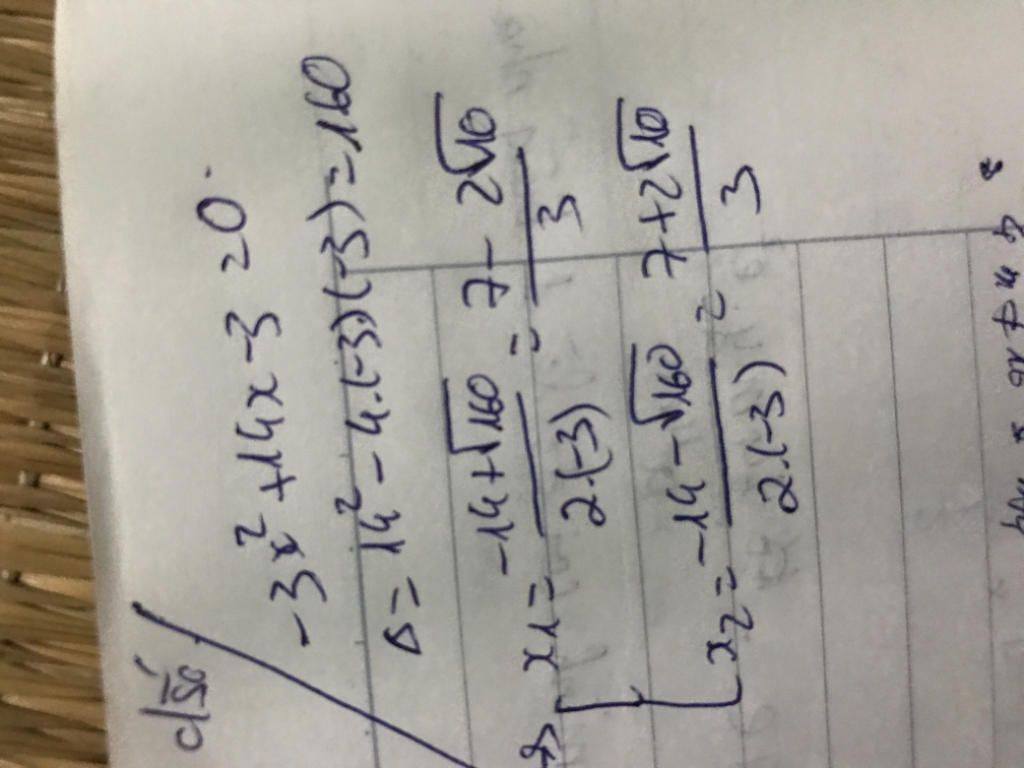 -3x² + 14x - 3 = 0
Δ = 14² - 4.(-3)(-3) = 160
x1 = (-14+√160)/(2.(-3)) = (7-2√10)/3
x2 = (-14-√160)/(2.(-3)) = (7+2√10)/3